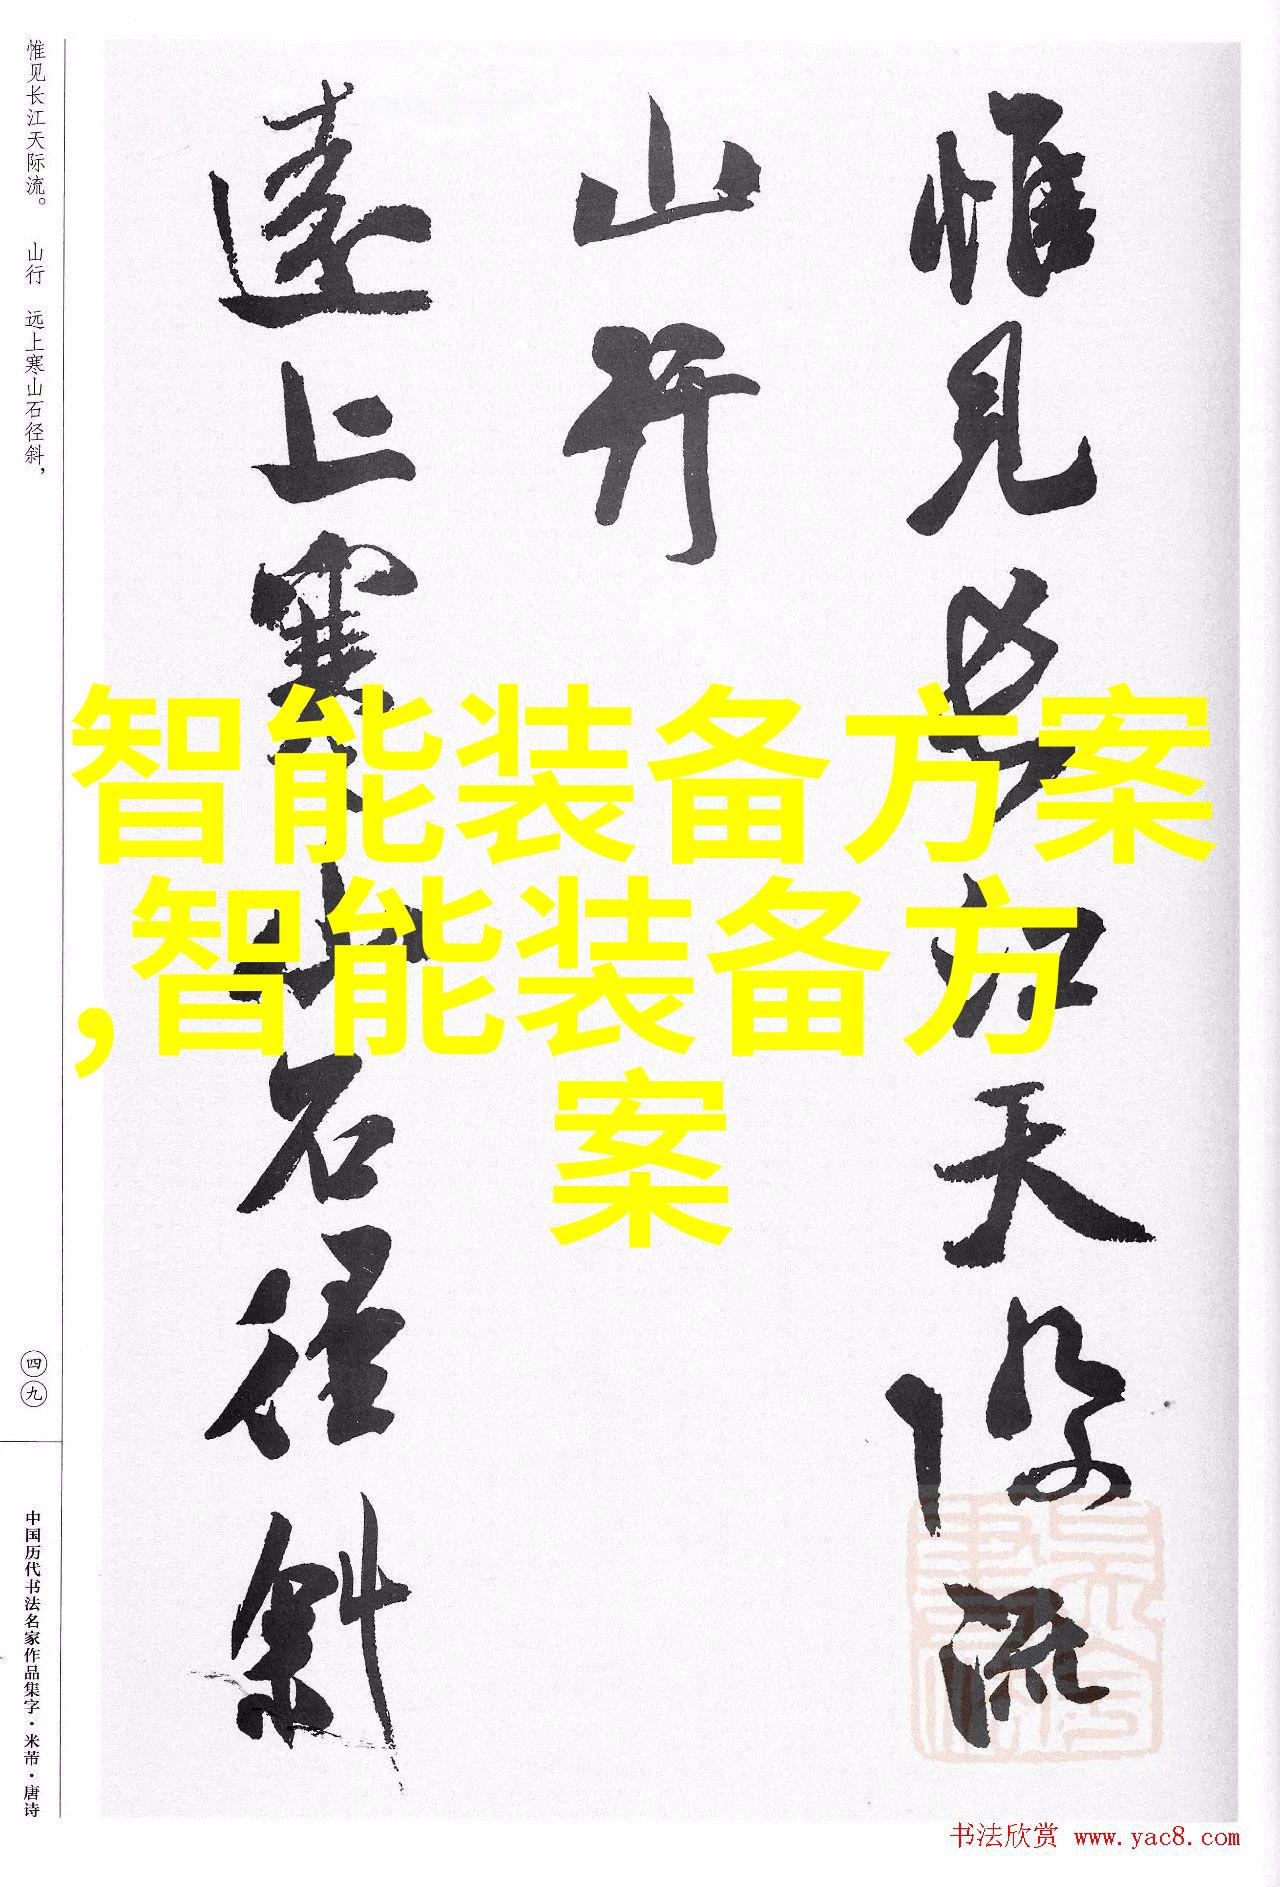 惟见长江天际流。 山行 远上寒山石径斜，
惟見長江天際流
山行
遠上寒山石徑斜
智能装备方案
,智能装备方
案
四九
中国历代书法名家作品集字·米芾·唐诗
书法欣赏 www.yac8.com